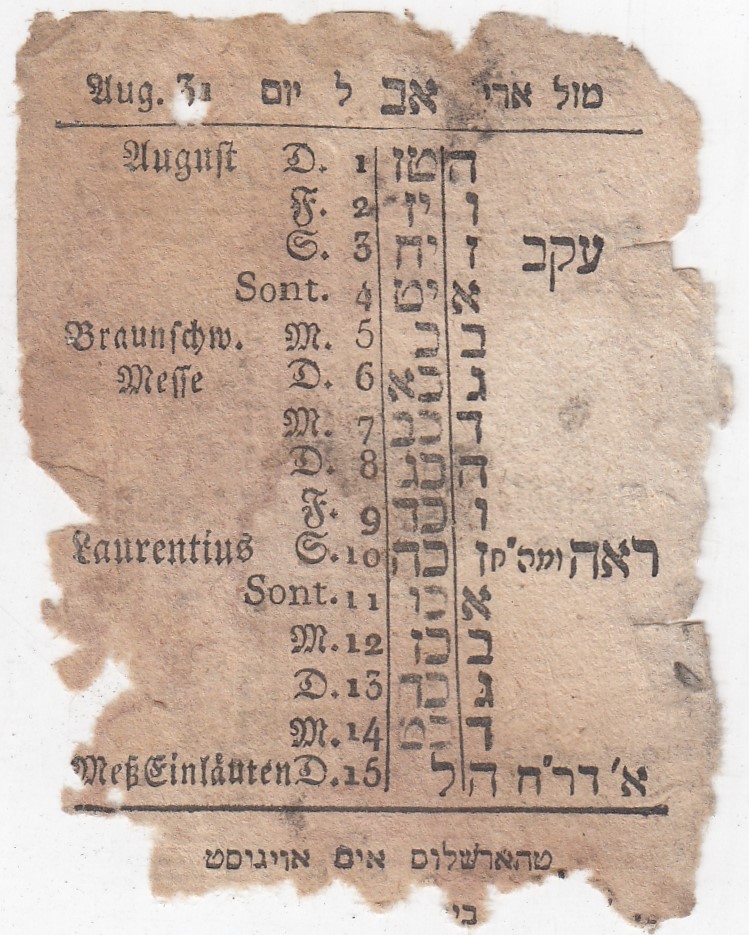 מזל ארי' אב ל יום Aug. 31
August D. 1 טז ה
F. 2 יז ו
S. 3 יח ז עקב
Sont. 4 יט א
Braunschw. M. 5 כ ב
Messe D. 6 כא ג
M. 7 כב ד
D. 8 כג ה
F. 9 כד ו
Laurentius S. 10 כה ז ראה ומה"ח
Sont. 11 כו א
M. 12 כז ב
D. 13 כח ג
M. 14 כט ד
Meß Einläuten D. 15 ל ה א' דר"ח
טהארשלוס אים אויגוסט
בי